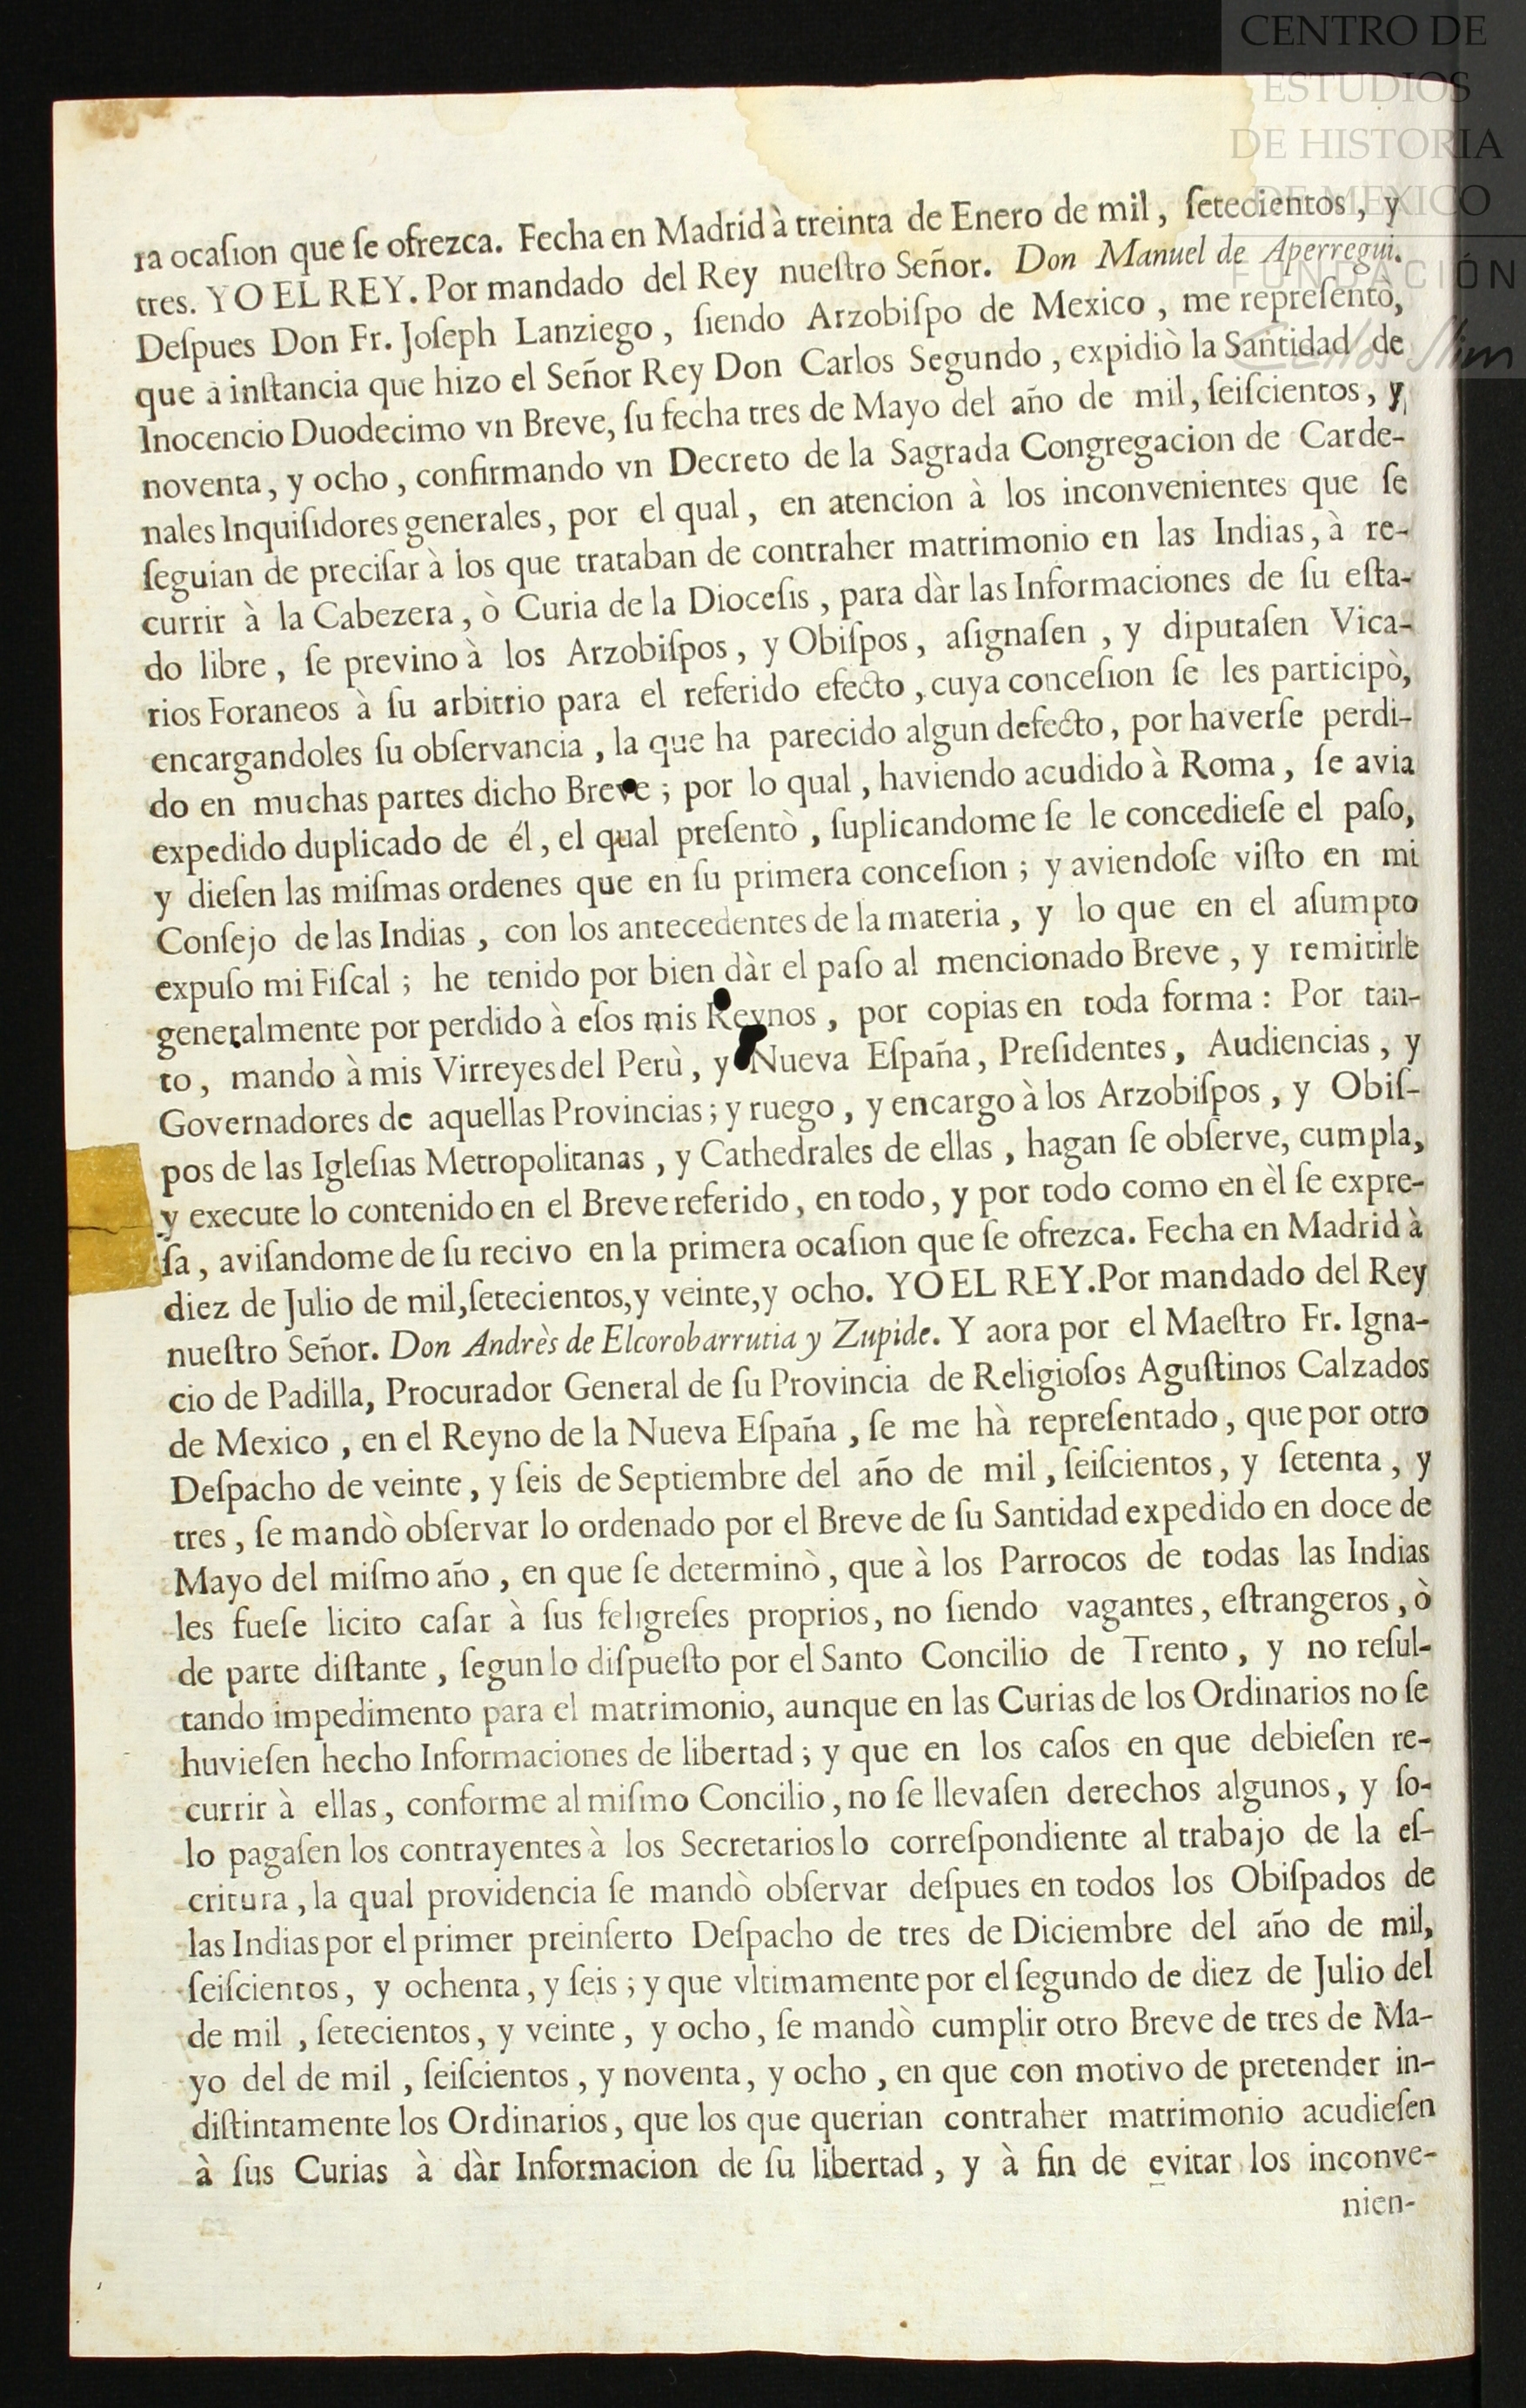 CENTRO DE
ESTUDIOS
DE HISTORIA
DE MEXICO
FUNDACIÓN
Carlos Slim
ra ocaſion que ſe ofrezca. Fecha en Madrid à treinta de Enero de mil, ſetecientos, y
tres. YO EL REY. Por mandado del Rey nueſtro Señor. Don Manuel de Aperregui.
Deſpues Don Fr. Joſeph Lanziego, ſiendo Arzobiſpo de Mexico, me repreſentò,
que à inſtancia que hizo el Señor Rey Don Carlos Segundo, expidiò la Santidad de
Inocencio Duodecimo vn Breve, ſu fecha tres de Mayo del año de mil, ſeiſcientos, y
noventa, y ocho, confirmando vn Decreto de la Sagrada Congregacion de Carde-
nales Inquiſidores generales, por el qual, en atencion à los inconvenientes que ſe
ſeguian de preciſar à los que trataban de contraher matrimonio en las Indias, à re-
currir à la Cabezera, ò Curia de la Dioceſis, para dàr las Informaciones de ſu eſta-
do libre, ſe previno à los Arzobiſpos, y Obiſpos, aſignaſen, y diputaſen Vica-
rios Foraneos à ſu arbitrio para el referido efecto, cuya conceſion ſe les participò,
encargandoles ſu obſervancia, la que ha parecido algun defecto, por haverſe perdi-
do en muchas partes dicho Breve; por lo qual, haviendo acudido à Roma, ſe avia
expedido duplicado de él, el qual preſentò, ſuplicandome ſe le concedieſe el paſo,
y dieſen las miſmas ordenes que en ſu primera conceſion; y aviendoſe viſto en mi
Conſejo de las Indias, con los antecedentes de la materia, y lo que en el aſumpto
expuſo mi Fiſcal; he tenido por bien dàr el paſo al mencionado Breve, y remitirle
generalmente por perdido à eſos mis Reynos, por copias en toda forma: Por tan-
to, mando à mis Virreyes del Perù, y Nueva Eſpaña, Preſidentes, Audiencias, y
Governadores de aquellas Provincias; y ruego, y encargo à los Arzobiſpos, y Obiſ-
pos de las Igleſias Metropolitanas, y Cathedrales de ellas, hagan ſe obſerve, cumpla,
y execute lo contenido en el Breve referido, en todo, y por todo como en èl ſe expre-
ſa, aviſandome de ſu recivo en la primera ocaſion que ſe ofrezca. Fecha en Madrid à
diez de Julio de mil, ſetecientos, y veinte, y ocho. YO EL REY. Por mandado del Rey
nueſtro Señor. Don Andrès de Elcorobarrutia y Zupide. Y aora por el Maeſtro Fr. Igna-
cio de Padilla, Procurador General de ſu Provincia de Religioſos Aguſtinos Calzados
de Mexico, en el Reyno de la Nueva Eſpaña, ſe me hà repreſentado, que por otro
Deſpacho de veinte, y ſeis de Septiembre del año de mil, ſeiſcientos, y ſetenta, y
tres, ſe mandò obſervar lo ordenado por el Breve de ſu Santidad expedido en doce de
Mayo del miſmo año, en que ſe determinò, que à los Parrocos de todas las Indias
les fueſe licito caſar à ſus feligreſes proprios, no ſiendo vagantes, eſtrangeros, ò
de parte diſtante, ſegun lo diſpueſto por el Santo Concilio de Trento, y no reſul-
tando impedimento para el matrimonio, aunque en las Curias de los Ordinarios no ſe
huvieſen hecho Informaciones de libertad; y que en los caſos en que debieſen re-
currir à ellas, conforme al miſmo Concilio, no ſe llevaſen derechos algunos, y ſo-
lo pagaſen los contrayentes à los Secretarios lo correſpondiente al trabajo de la eſ-
critura, la qual providencia ſe mandò obſervar deſpues en todos los Obiſpados de
las Indias por el primer preinſerto Deſpacho de tres de Diciembre del año de mil,
ſeiſcientos, y ochenta, y ſeis; y que vltimamente por el ſegundo de diez de Julio del
de mil, ſetecientos, y veinte, y ocho, ſe mandò cumplir otro Breve de tres de Ma-
yo del de mil, ſeiſcientos, y noventa, y ocho, en que con motivo de pretender in-
diſtintamente los Ordinarios, que los que querian contraher matrimonio acudieſen
à ſus Curias à dàr Informacion de ſu libertad, y à fin de evitar los inconve-
nien-